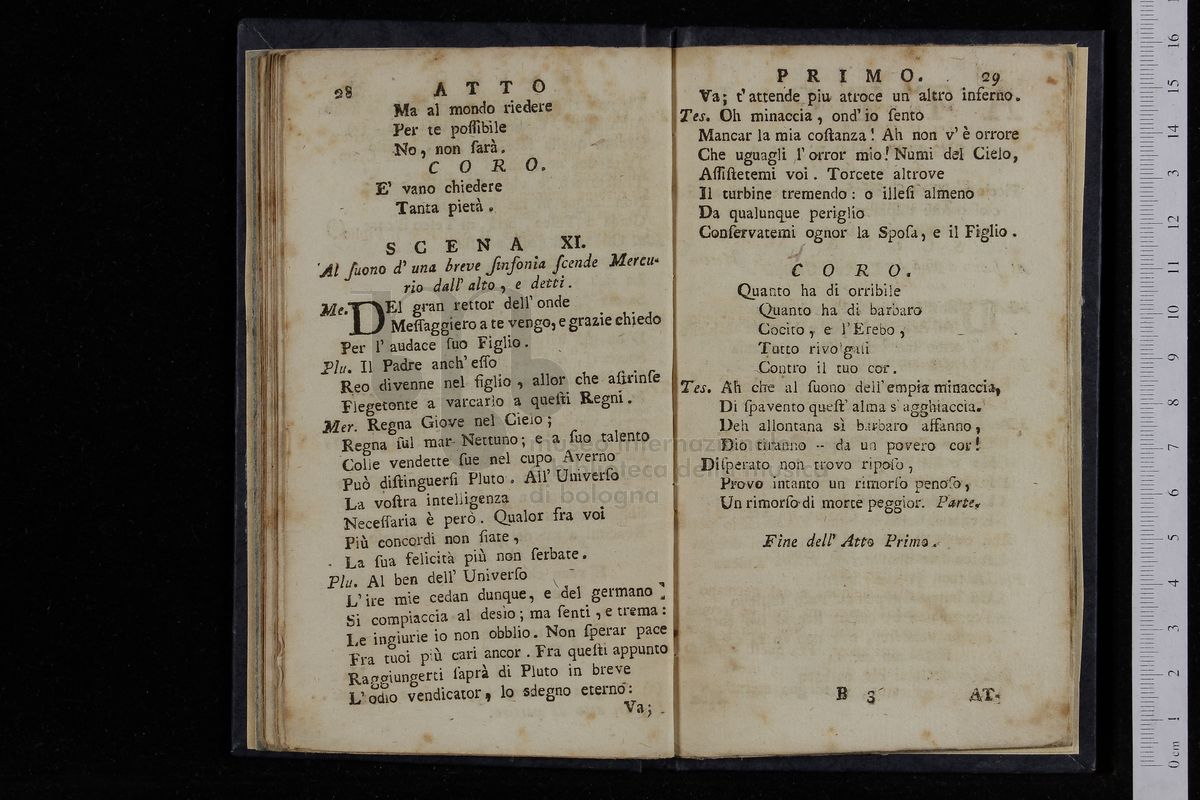 28 A T T O
Ma al mondo riedere
Per te poſſibile
No, non ſarà.
C O R O.
E' vano chiedere
Tanta pietà.
S C E N A XI.
Al ſuono d' una breve ſinfonia ſcende Mercu-
rio dall' alto, e detti.
Me. DEl gran rettor dell' onde
Meſſaggiero a te vengo, e grazie chiedo
Per l' audace ſuo Figlio.
Plu. Il Padre anch' eſſo
Reo divenne nel figlio, allor che aſtrinſe
Flegetonte a varcarlo a queſti Regni.
Mer. Regna Giove nel Cielo;
Regna ſul mar Nettuno; e a ſuo talento
Colle vendette ſue nel cupo Averno
Può diſtinguerſi Pluto. All' Univerſo
La voſtra intelligenza
Neceſſaria è però. Qualor fra voi
Più concordi non ſiate,
La ſua felicità più non ſerbate.
Plu. Al ben dell' Univerſo
L' ire mie cedan dunque, e del germano
Si compiaccia al desio; ma ſenti, e trema:
Le ingiurie io non obblio. Non ſperar pace
Fra tuoi più cari ancor. Fra queſti appunto
Raggiungerti ſaprà di Pluto in breve
L' odio vendicator, lo sdegno eterno:
Va;
P R I M O. 29
Va; t' attende piu atroce un altro inferno.
Tes. Oh minaccia, ond' io ſento
Mancar la mia coſtanza! Ah non v' è orrore
Che uguagli l' orror mio! Numi del Cielo,
Aſſiſtetemi voi. Torcete altrove
Il turbine tremendo: o illeſi almeno
Da qualunque periglio
Conſervatemi ognor la Spoſa, e il Figlio.
C O R O.
Quanto ha di orribile
Quanto ha di barbaro
Cocito, e l' Erebo,
Tutto rivolgaſi
Contro il tuo cor.
Tes. Ah che al ſuono dell' empia minaccia,
Di ſpavento queſt' alma s' agghiaccia.
Deh allontana sì barbaro affanno,
Dio tiranno -- da un povero cor!
Diſperato non trovo ripoſo,
Provo intanto un rimorſo penoſo,
Un rimorſo di morte peggior. Parte.
Fine dell' Atto Primo.
B 3 AT-
museo internazionale
biblioteca della musica
di bologna
0 cm 1 2 3 4 5 6 7 8 9 10 11 12 13 14 15 16